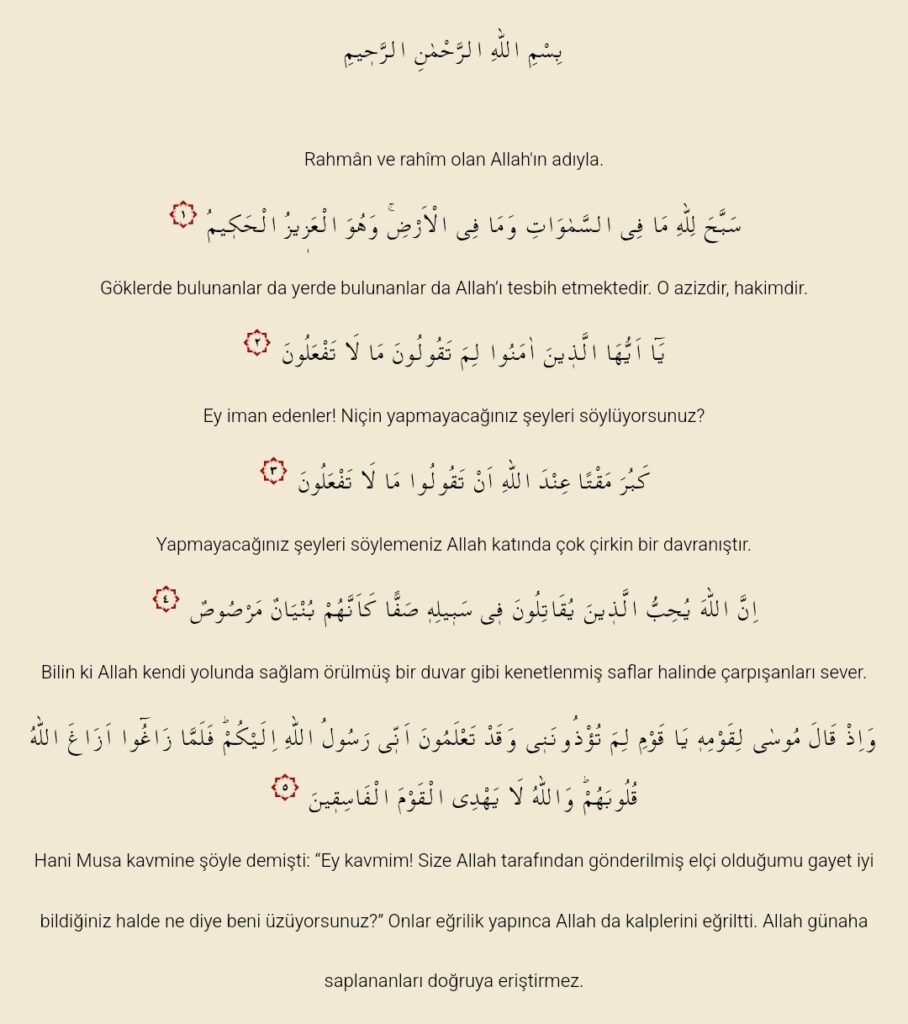 بِسْمِ اللّٰهِ الرَّحْمٰنِ الرَّح۪يمِ
Rahmân ve rahîm olan Allah'ın adıyla.
سَبَّحَ لِلّٰهِ مَا فِي السَّمٰوَاتِ وَمَا فِي الْاَرْضِۚ وَهُوَ الْعَز۪يزُ الْحَك۪يمُ ١
Göklerde bulunanlar da yerde bulunanlar da Allah’ı tesbih etmektedir. O azizdir, hakimdir.
يَٓا اَيُّهَا الَّذ۪ينَ اٰمَنُوا لِمَ تَقُولُونَ مَا لَا تَفْعَلُونَ ٢
Ey iman edenler! Niçin yapmayacağınız şeyleri söylüyorsunuz?
كَبُرَ مَقْتًا عِنْدَ اللّٰهِ اَنْ تَقُولُوا مَا لَا تَفْعَلُونَ ٣
Yapmayacağınız şeyleri söylemeniz Allah katında çok çirkin bir davranıştır.
اِنَّ اللّٰهَ يُحِبُّ الَّذ۪ينَ يُقَاتِلُونَ ف۪ي سَب۪يلِه۪ صَفًّا كَاَنَّهُمْ بُنْيَانٌ مَرْصُوصٌ ٤
Bilin ki Allah kendi yolunda sağlam örülmüş bir duvar gibi kenetlenmiş saflar halinde çarpışanları sever.
وَاِذْ قَالَ مُوسٰى لِقَوْمِه۪ يَا قَوْمِ لِمَ تُؤْذُونَن۪ي وَقَدْ تَعْلَمُونَ اَنّ۪ي رَسُولُ اللّٰهِ اِلَيْكُمْۜ فَلَمَّا زَاغُٓوا اَزَاغَ اللّٰهُ
قُلُوبَهُمْۜ وَاللّٰهُ لَا يَهْدِي الْقَوْمَ الْفَاسِق۪ينَ ٥
Hani Musa kavmine şöyle demişti: “Ey kavmim! Size Allah tarafından gönderilmiş elçi olduğumu gayet iyi
bildiğiniz halde ne diye beni üzüyorsunuz?” Onlar eğrilik yapınca Allah da kalplerini eğriltti. Allah günaha
saplananları doğruya eriştirmez.